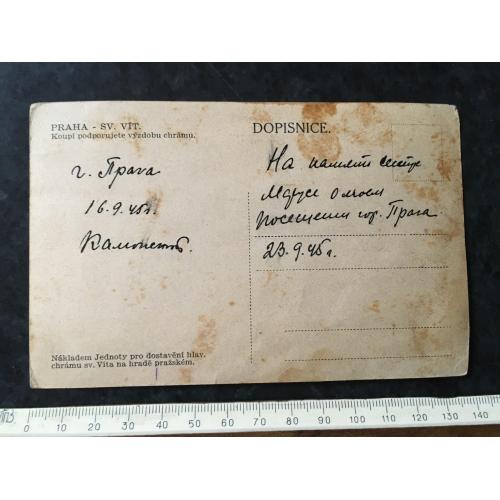 PRAHA - SV. VÍT.
Koupí podporujete výzdobu chrámu.
DOPISNICE.
г. Прага
16.9.45г.
На память сестре
Марусе о моем
посещении гор. Прага
23.9.45г.
Nákladem Jednoty pro dostavění hlav.
chrámu sv. Víta na hradě pražském.
0 10 20 30 40 50 60 70 80 90 100 110 120 130 140